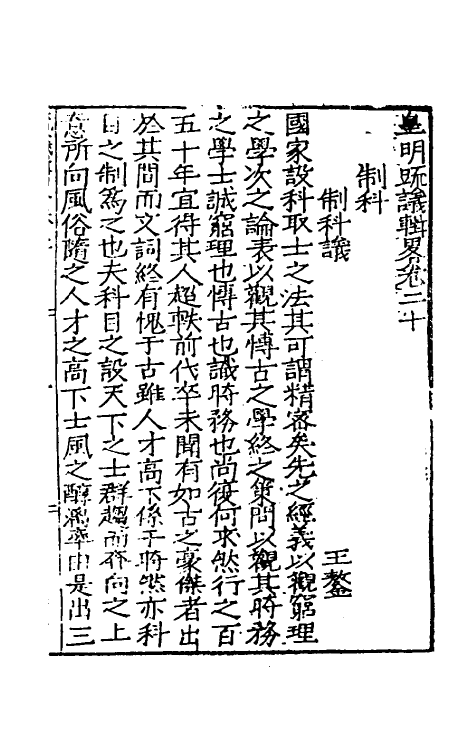 皇明疏議輯畧卷二十
制科
制科議
王鏊
國家設科取士之法其可謂精密矣先之經義以觀窮理
之學次之論表以觀其愽古之學終之策問以觀其時務
之學士誠窮理也愽古也識時務也尚復何求然行之百
五十年宜得其人超軼前代卒未聞有如古之豪傑者出
於其間而文詞終有愧于古雖人才高下係于時然亦科
目之制為之也夫科目之設天下之士群趨而奔向之上
意所向風俗隨之人才之高下士風之醇漓率由是出三